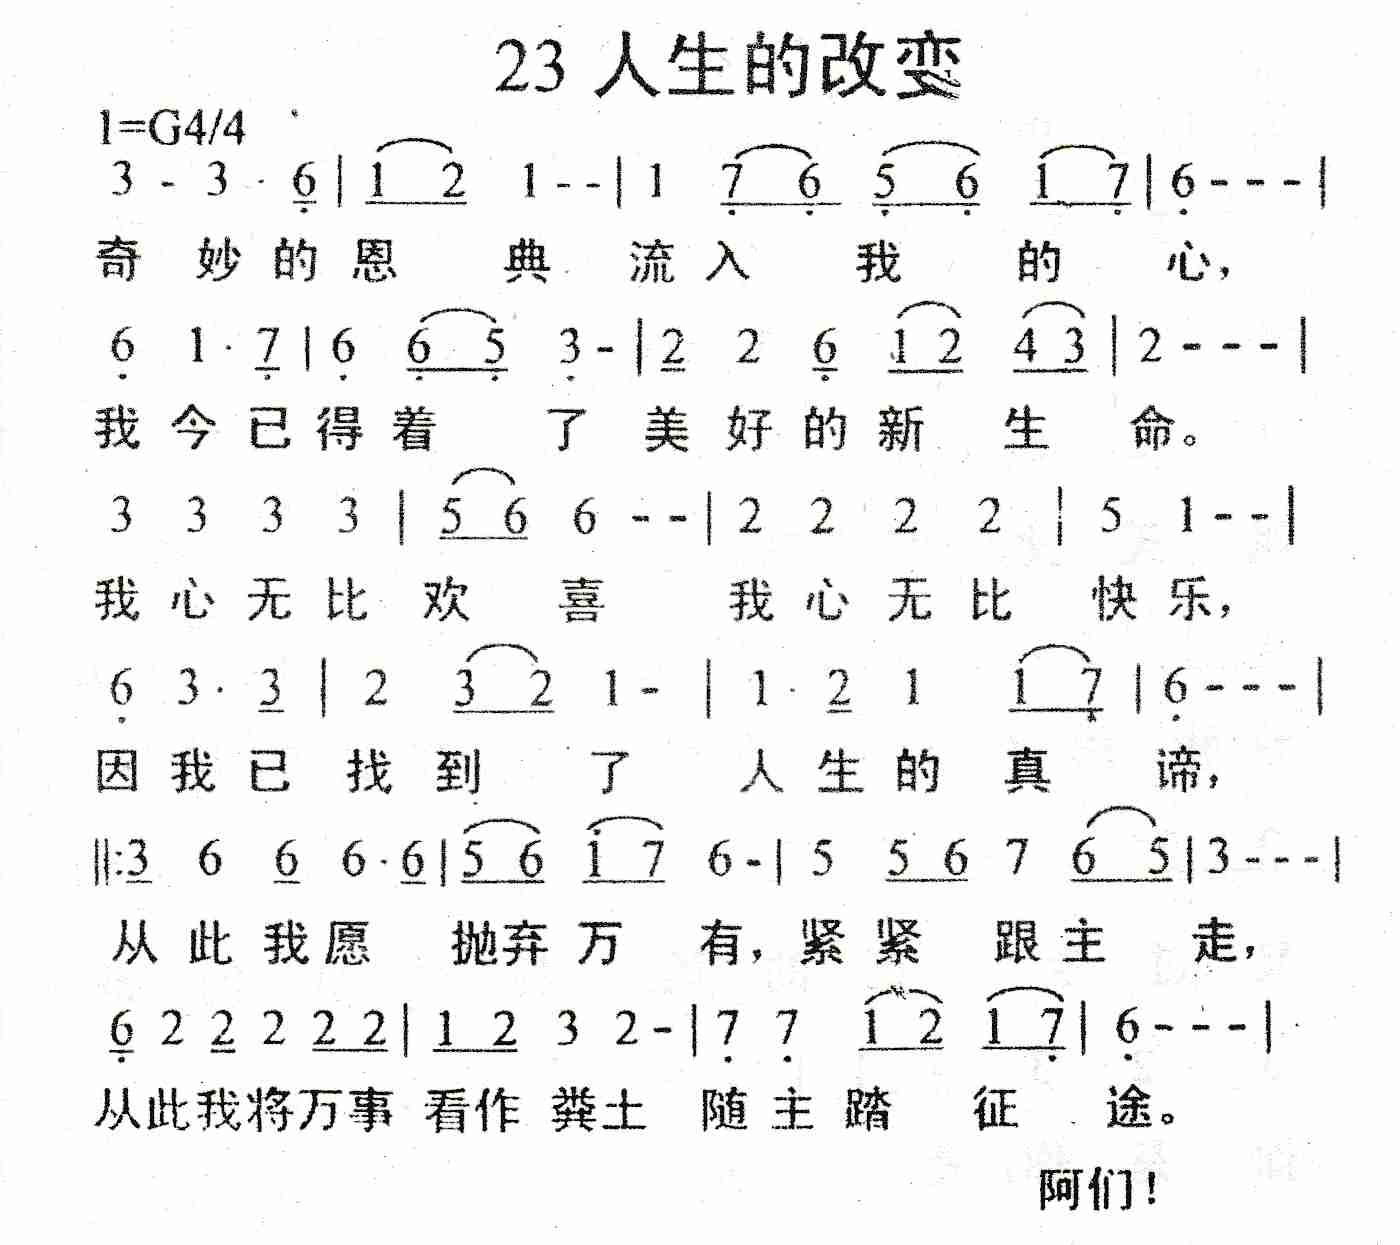 23 人生的改变
1=G4/4
3 - 3 · 6 | 1 2 1 - - | 1 7 6 5 6 1 7 | 6 - - - |
奇妙的恩典流入我的心，
6 1 · 7 | 6 6 5 3 - | 2 2 6 1 2 4 3 | 2 - - - |
我今已得着了美好的新生命。
3 3 3 3 | 5 6 6 - - | 2 2 2 2 | 5 1 - - |
我心无比欢喜 我心无比快乐，
6 3 · 3 | 2 3 2 1 - | 1 · 2 1 1 7 | 6 - - - |
因我已找到了人生的真谛，
‖: 3 6 6 6 · 6 | 5 6 1 7 6 - | 5 5 6 7 6 5 | 3 - - - |
从此我愿抛弃万有，紧紧跟主走，
6 2 2 2 2 2 | 1 2 3 2 - | 7 7 1 2 1 7 | 6 - - - |
从此我将万事看作粪土随主踏征途。
阿们！